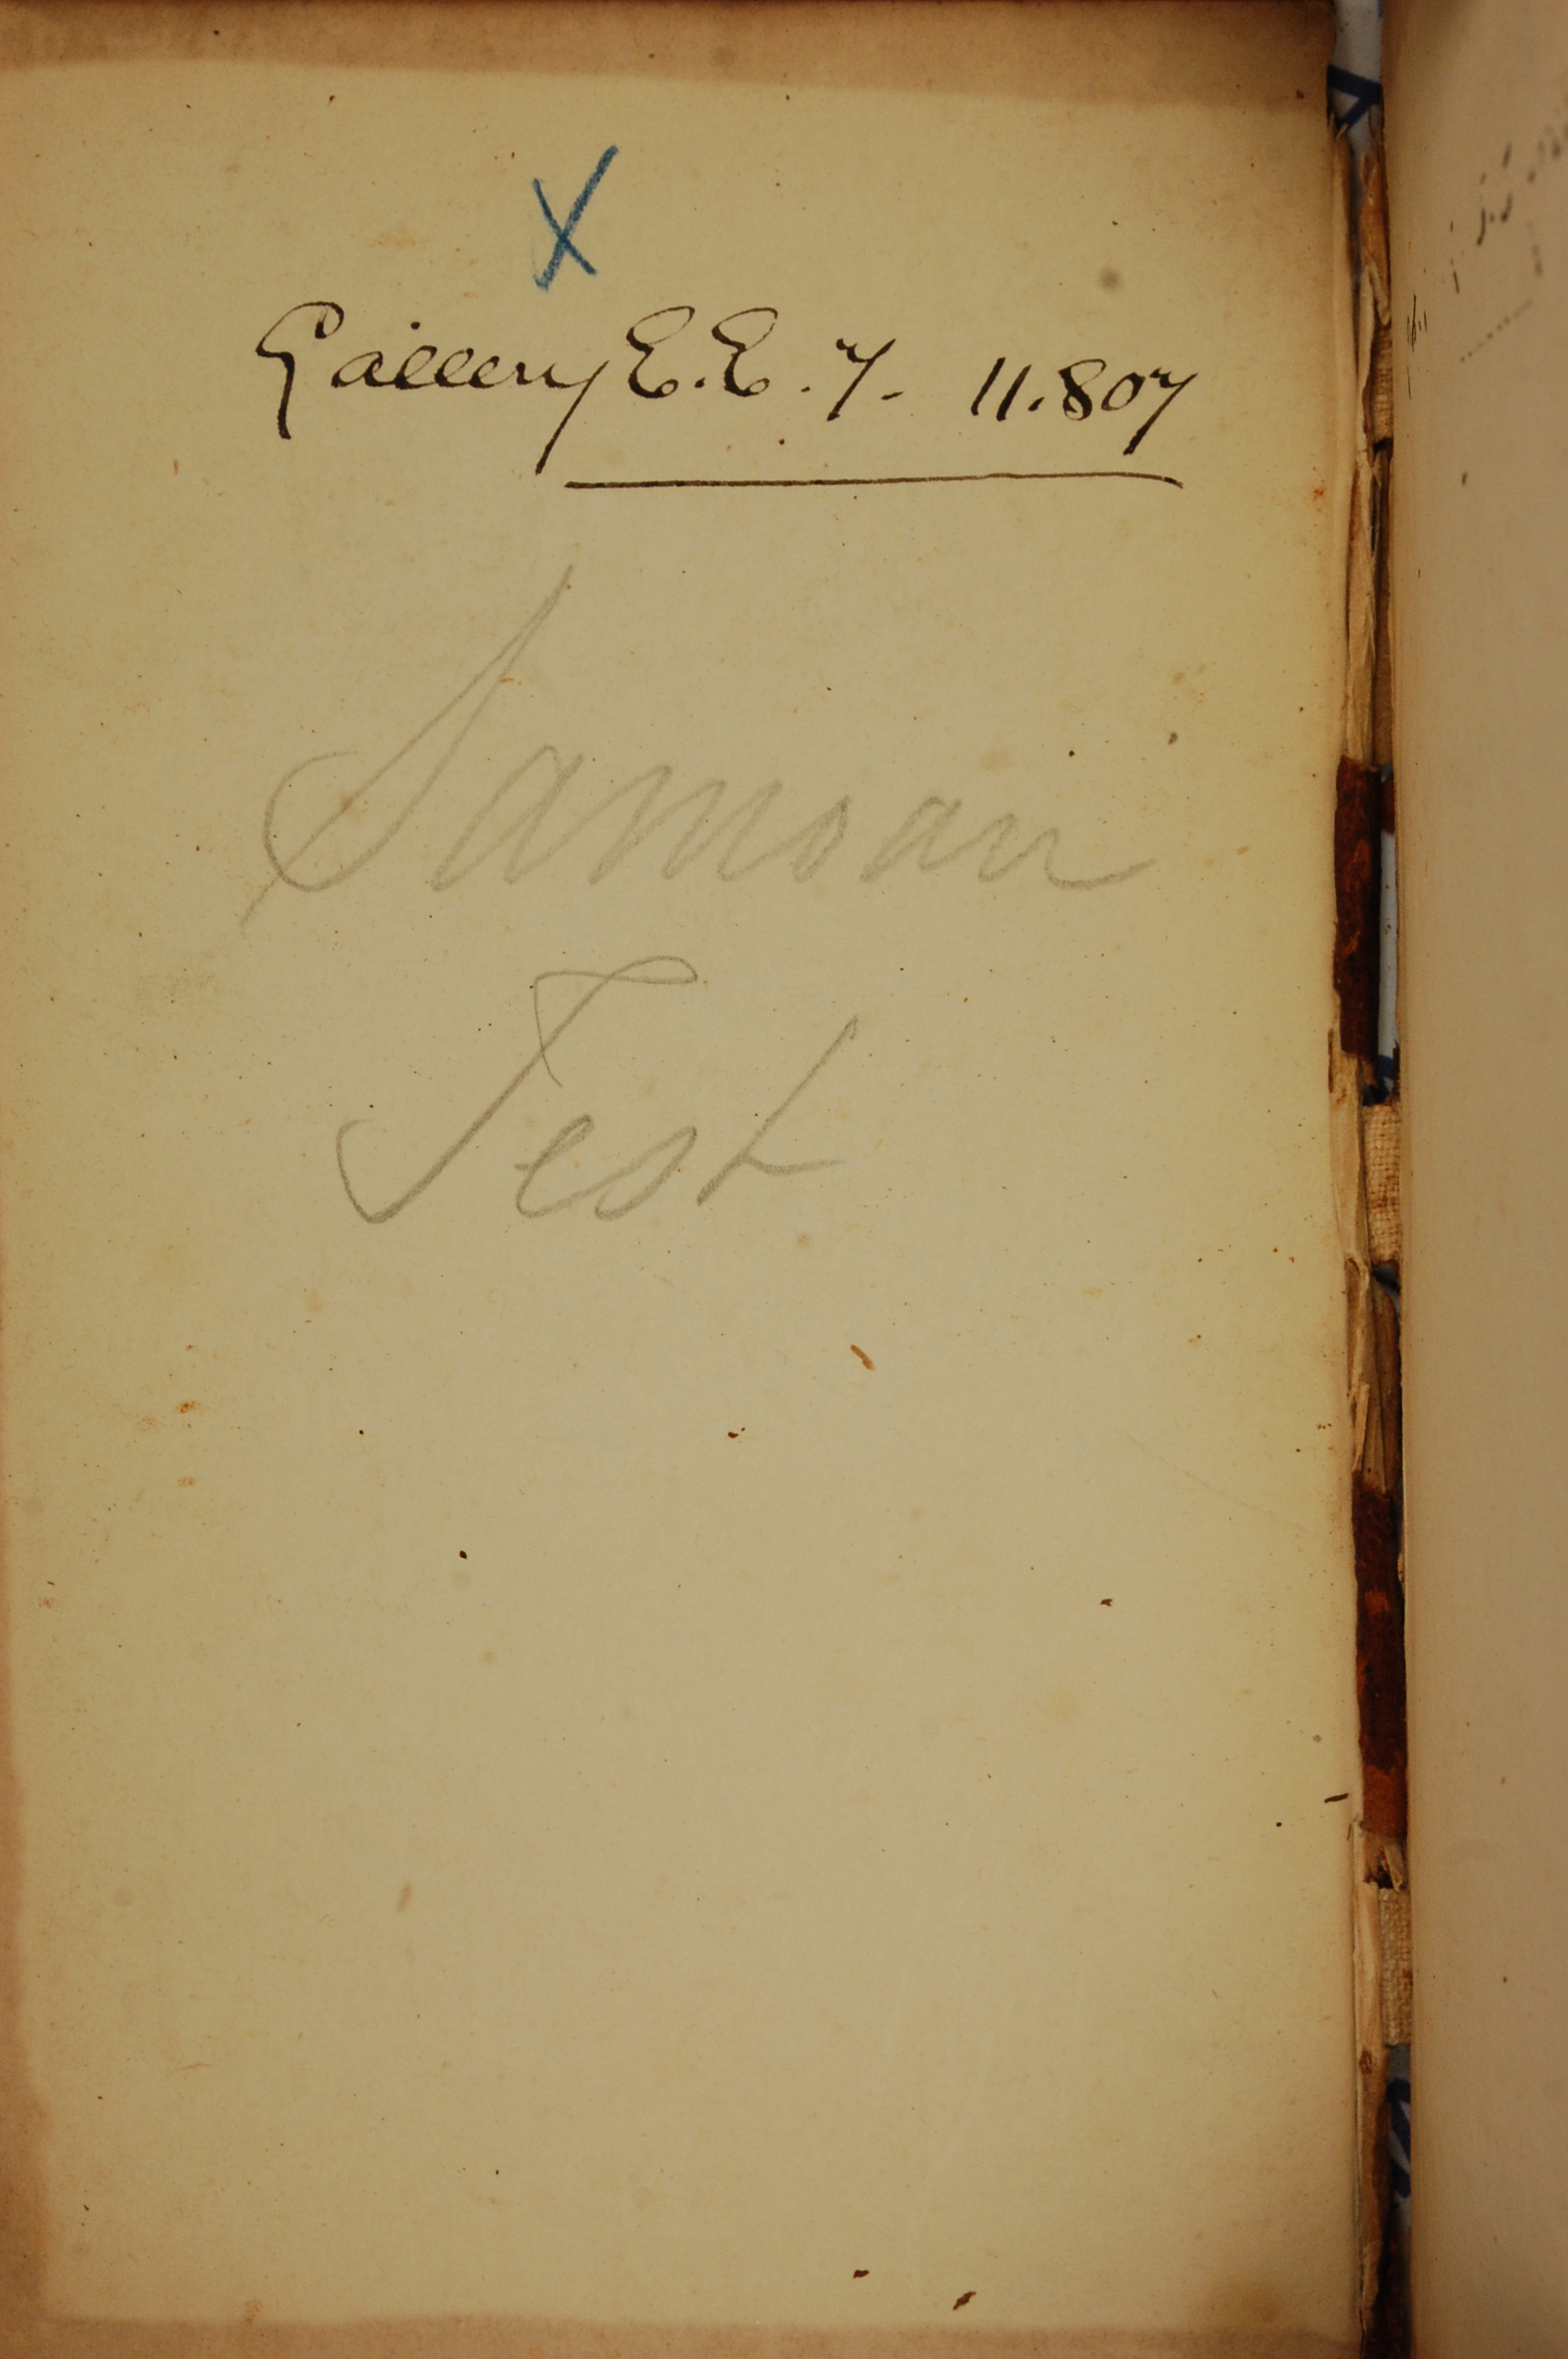 X
Gallery E.E.7. 11.807
Samoan
Test